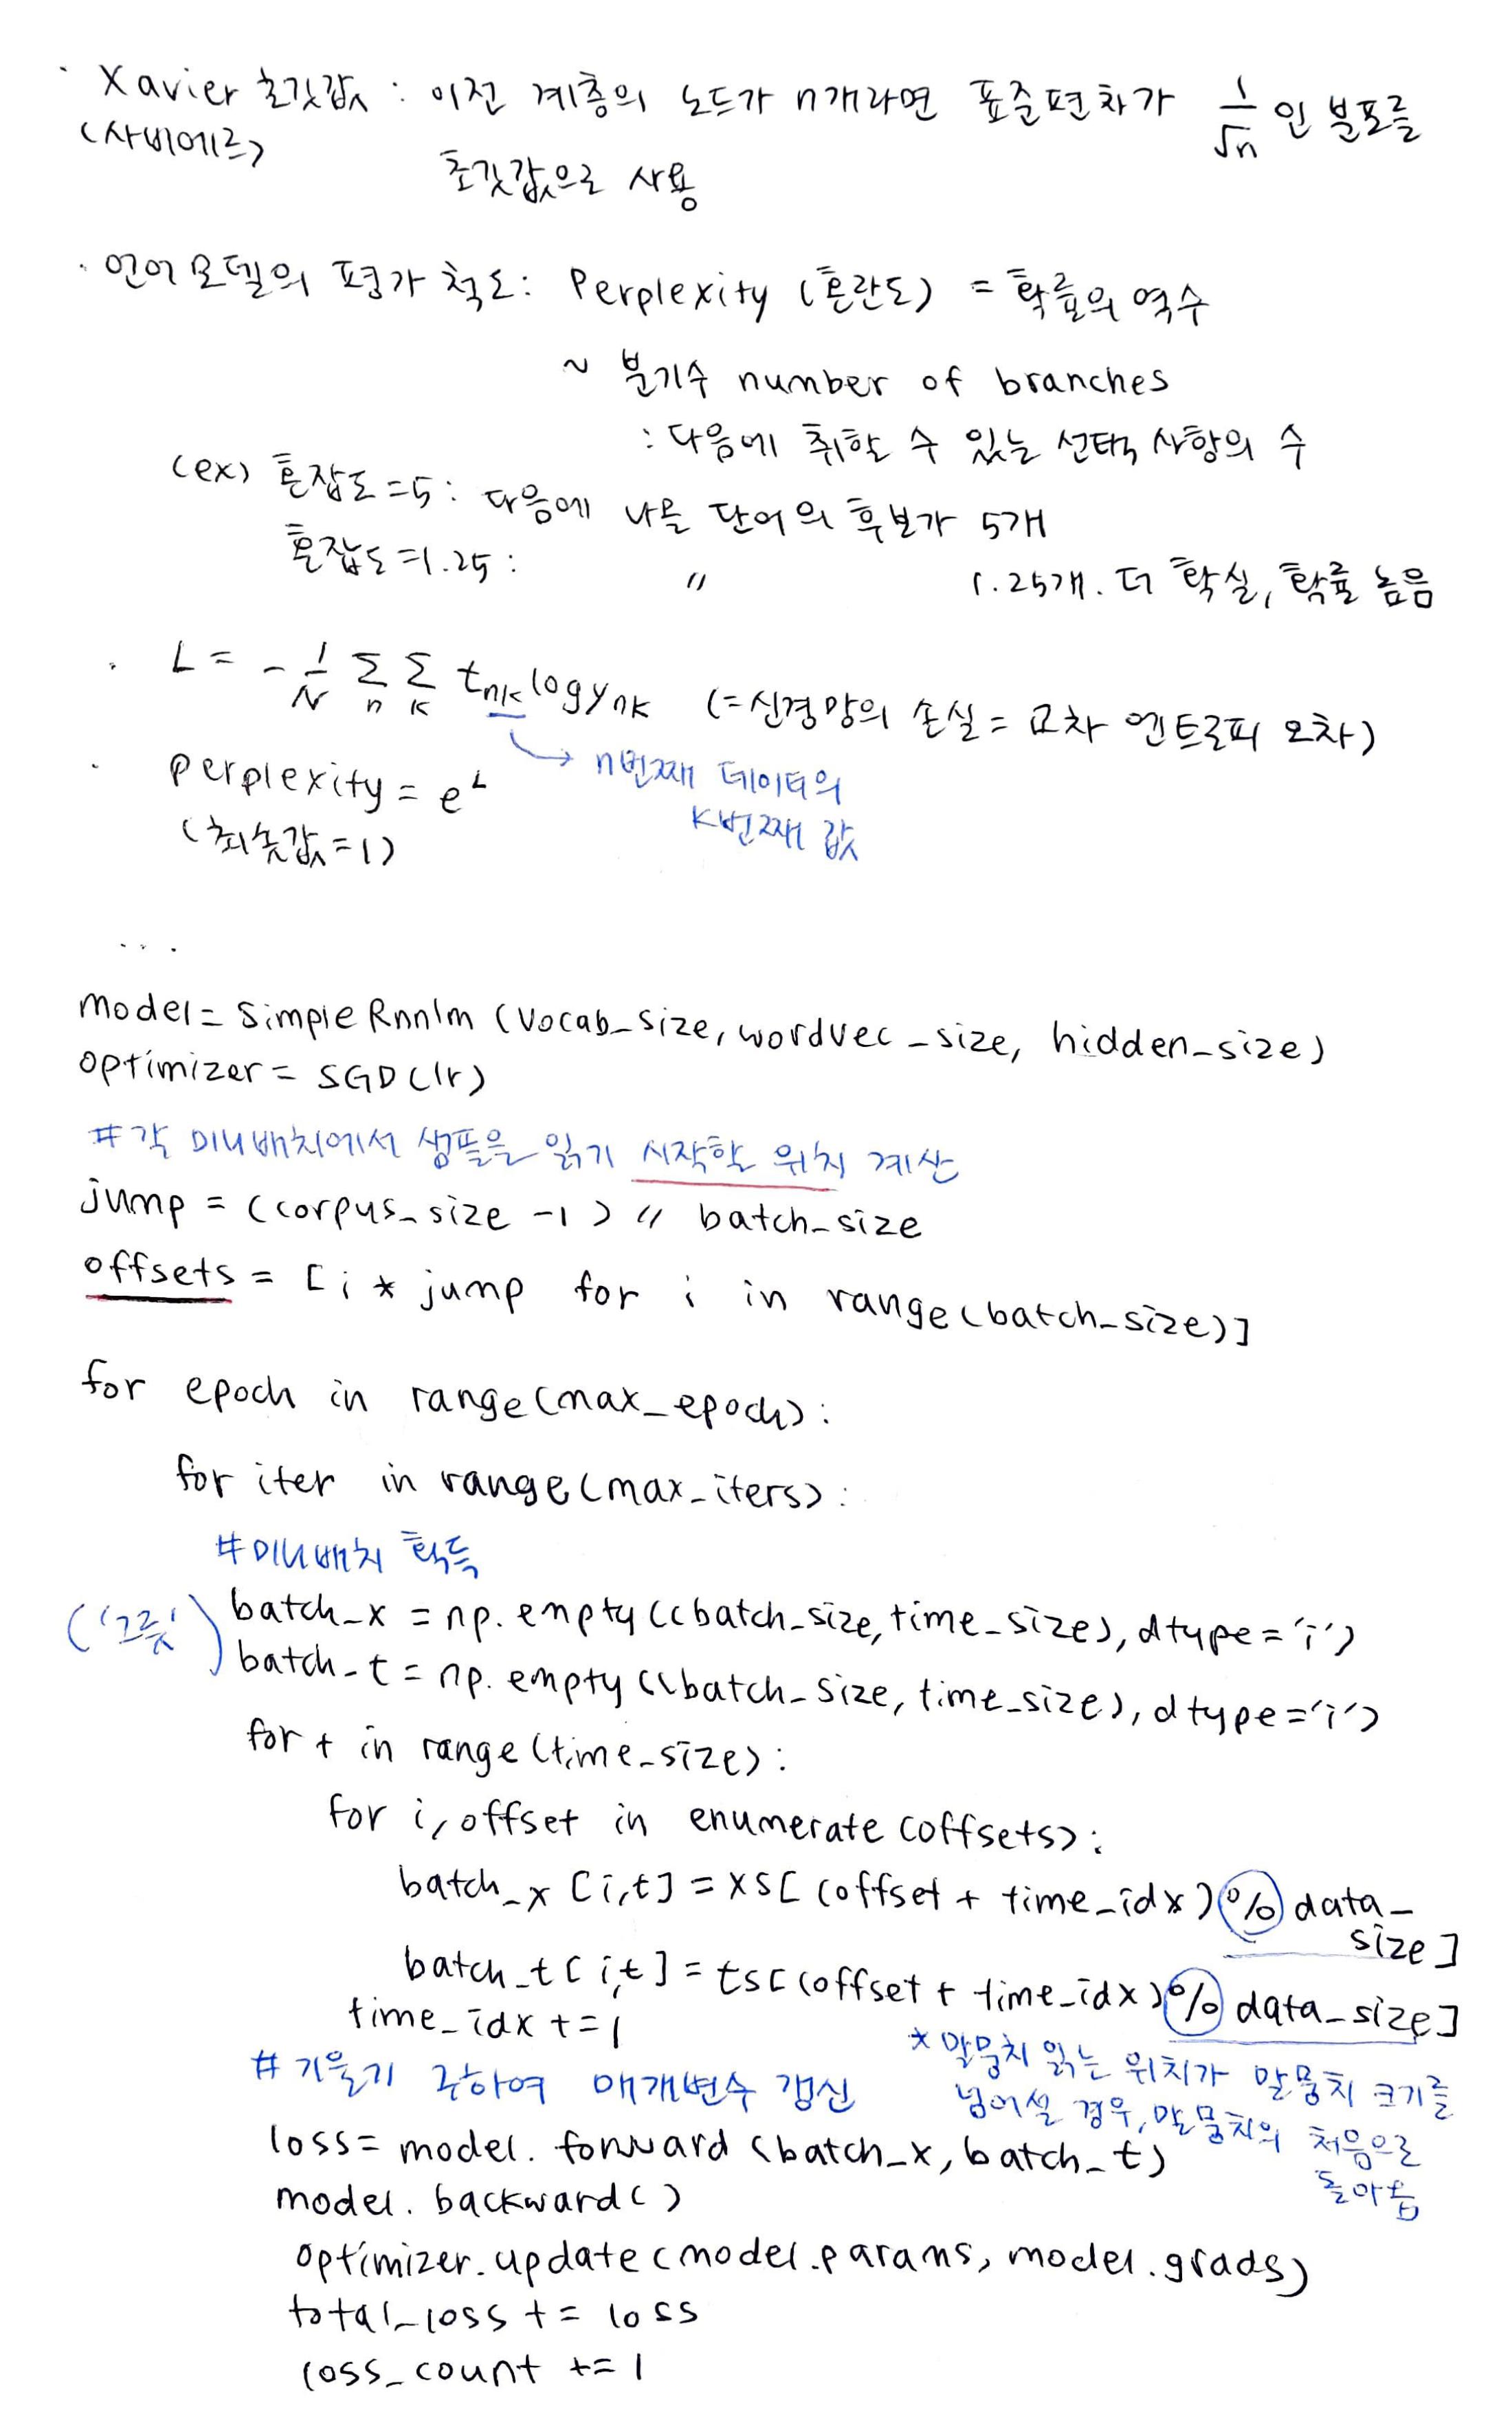 · Xavier 초깃값 : 이전 계층의 노드가 n개라면 표준편차가 1/√n 인 분포를
(사비에르)
초깃값으로 사용
· 언어모델의 평가 척도: Perplexity (혼란도) = 확률의 역수
~ 분기수 number of branches
: 다음에 취할 수 있는 선택 사항의 수
(ex) 혼잡도=5: 다음에 나올 단어의 후보가 5개
혼잡도=1.25: 〃 1.25개. 더 확실, 확률 높음
· L = -1/N Σn Σk tnk log ynk (=신경망의 손실= 교차 엔트로피 오차)
→ n번째 데이터의
k번째 값
· perplexity = e^L
(최솟값=1)
...
model = SimpleRnnlm (vocab_size, wordvec_size, hidden_size)
optimizer = SGD(lr)
# 각 미니배치에서 샘플을 읽기 시작할 위치 계산
jump = (corpus_size -1) // batch_size
offsets = [i * jump for i in range(batch_size)]
for epoch in range(max_epoch):
for iter in range(max_iters):
#미니배치 획득
('그릇') batch_x = np.empty((batch_size, time_size), dtype='i')
batch_t = np.empty((batch_size, time_size), dtype='i')
for t in range(time_size):
for i, offset in enumerate(offsets):
batch_x [i,t] = xs[ (offset + time_idx) % data_
size]
batch_t [i,t] = ts[(offset + time_idx) % data_size]
time_idx += 1
* 말뭉치 읽는 위치가 말뭉치 크기를
넘어설 경우, 말뭉치의 처음으로
돌아옴
# 기울기 구하여 매개변수 갱신
loss = model.forward (batch_x, batch_t)
model.backward()
optimizer.update(model.params, model.grads)
total_loss += loss
loss_count += 1